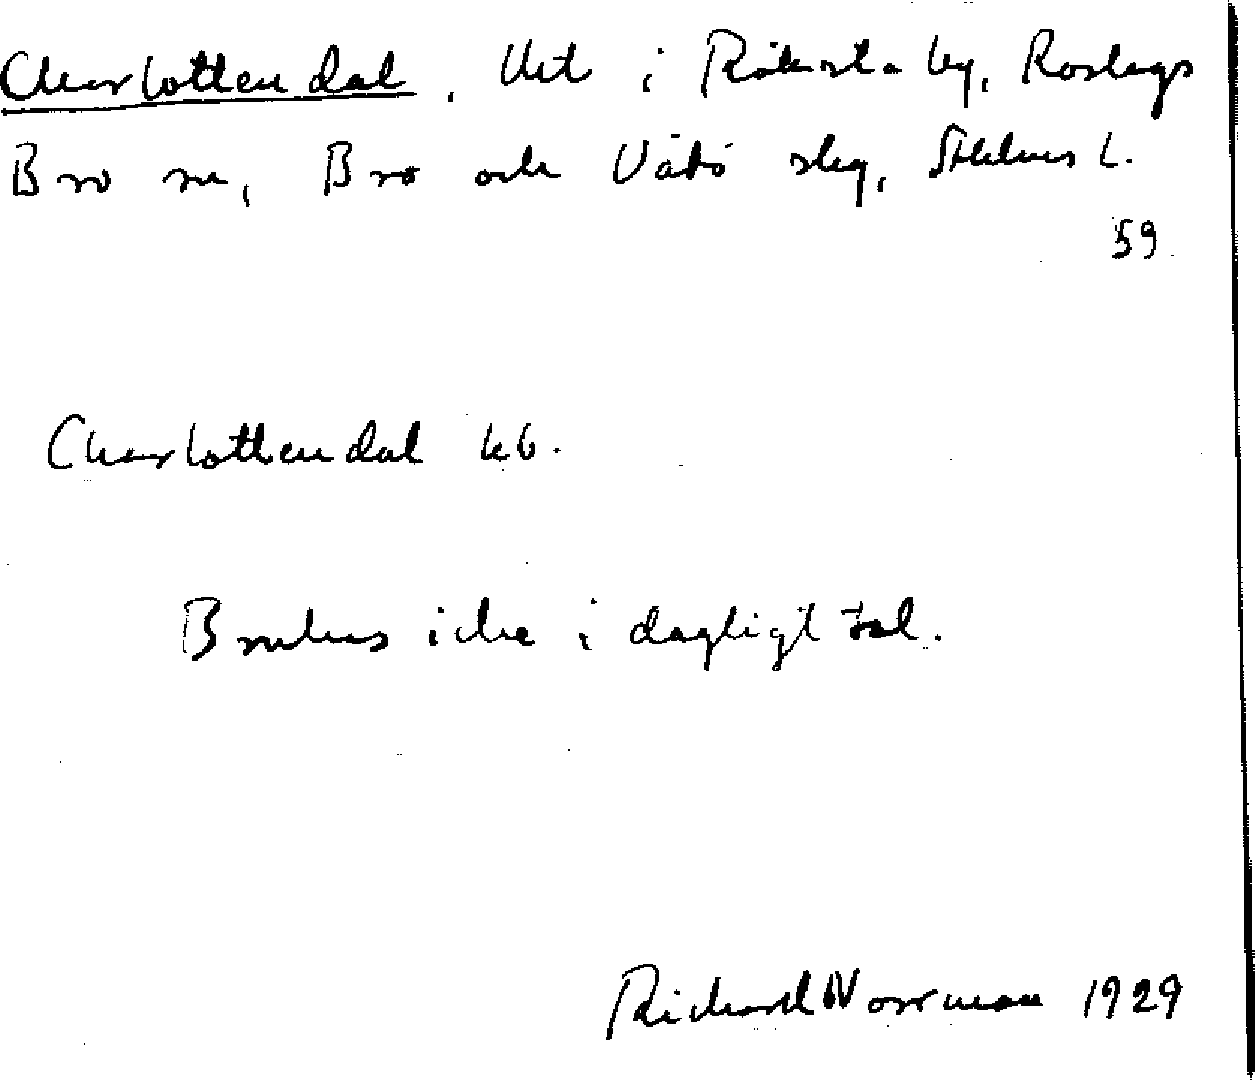 Charlottendal, lht i Rökersta by, Roslags
Bro sn, Bro och Vätö skg, Sthlms l.
59
Charlottendal kb.
Brukas icke i dagligt tal.
Richard Norrman 1929